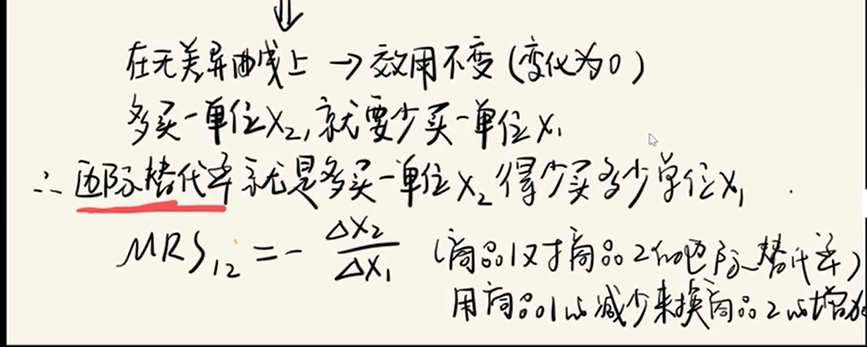 在无差异曲线上 → 效用不变 (变化为0)
多买一单位X₂, 就要少买一单位X₁
∴ 边际替代率就是多买一单位X₂得少买多少单位X₁
MRS₁₂ = - ΔX₂/ΔX₁ (商品1对商品2的边际替代率)
用商品1的减少来换商品2的增加